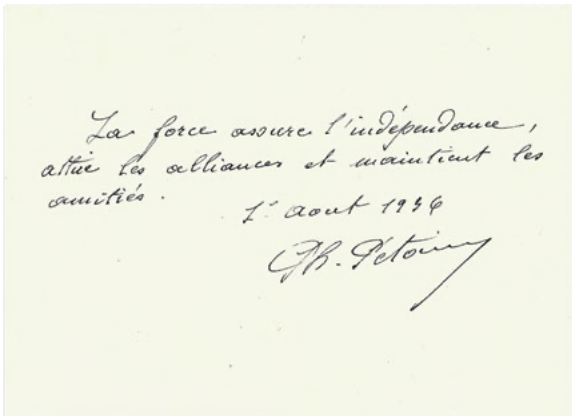 La force assure l'indépendance,
attire les alliances et maintient les
amitiés.
1er aout 1936
Ph. Pétain